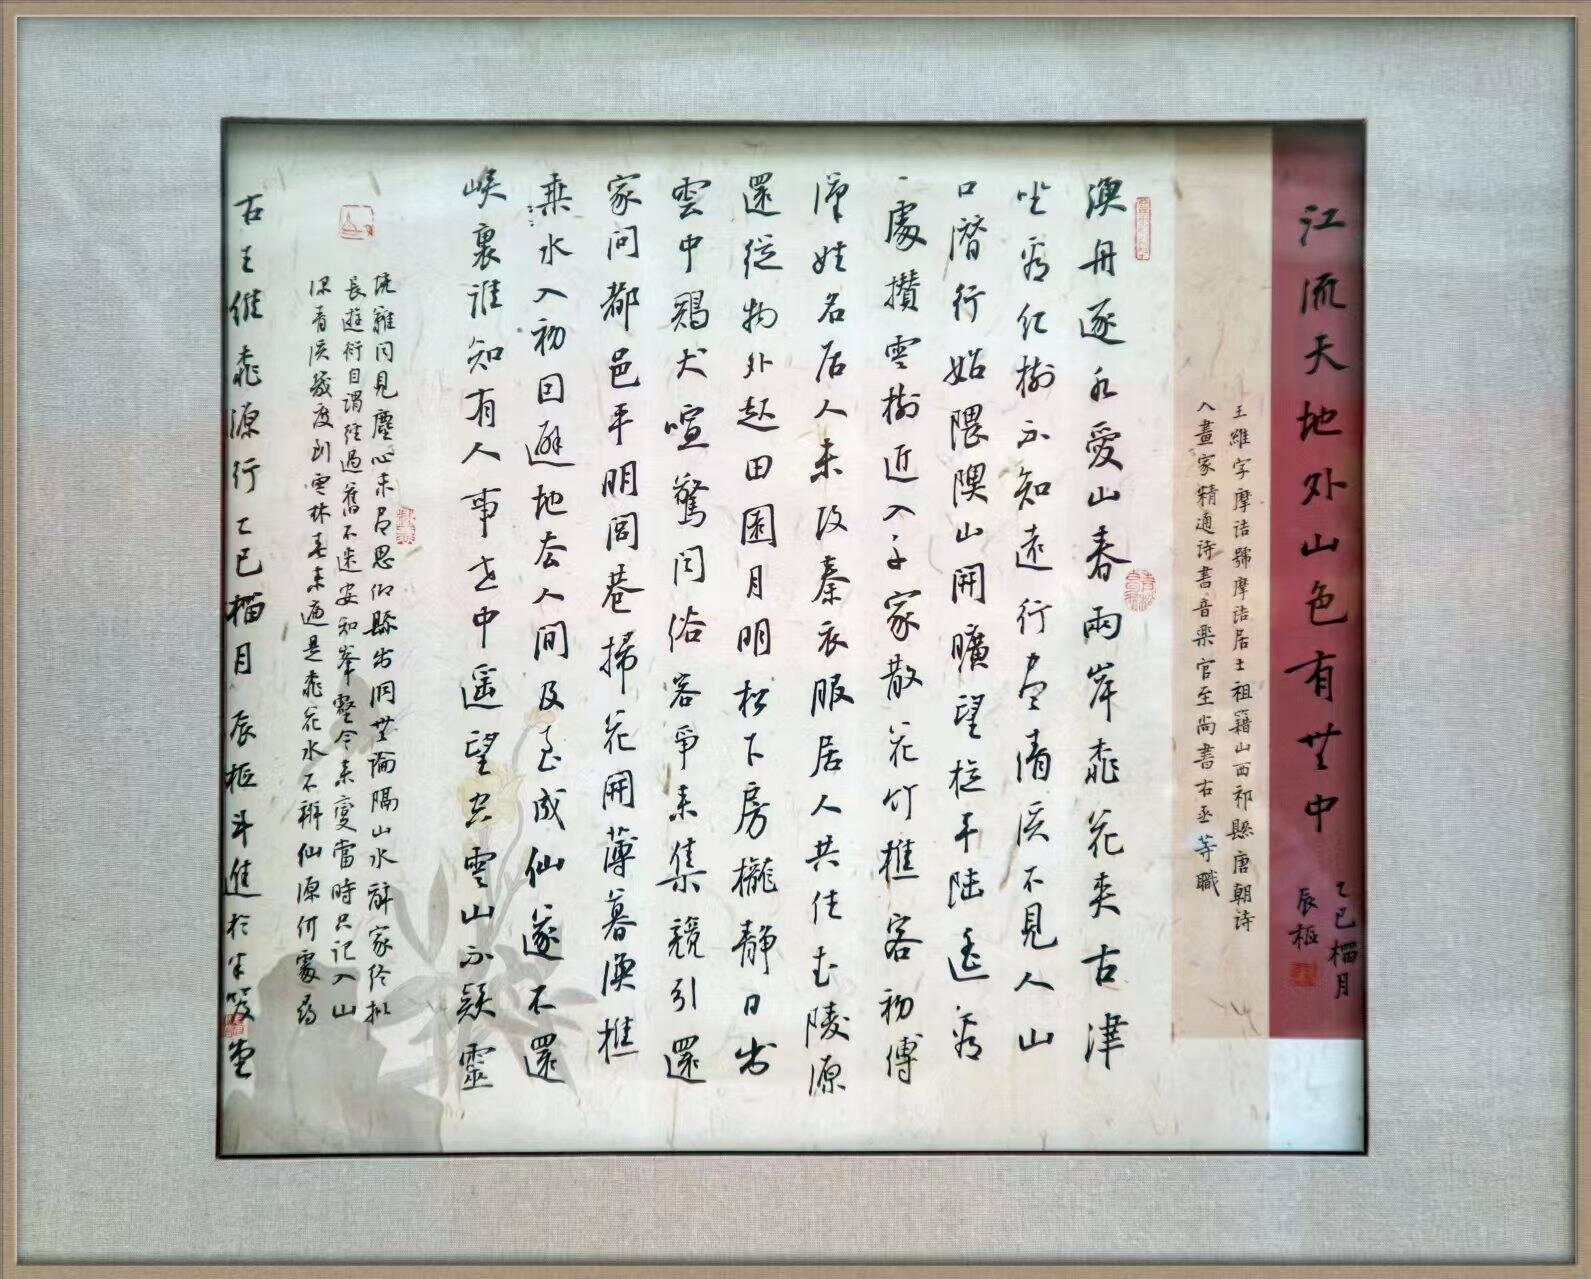 江流天地外山色有無中
乙巳榴月
辰樞
王維字摩詰號摩詰居士祖籍山西祁縣唐朝诗
人畫家精通诗書音樂官至尚書右丞等職
漁舟逐水愛山春兩岸桃花夾古津
坐看红樹不知遠行盡清溪不見人山
口潛行始隈隩山開曠望旋平陸遥看
一處攢雲樹近入千家散花竹樵客初傳
漢姓名居人未改秦衣服居人共住武陵源
還從物外起田園月明松下房櫳静日出
雲中鷄犬喧驚聞俗客爭來集競引還
家問都邑平明閭巷掃花開薄暮漁樵
乘水入初因避地去人間及至成仙遂不還
峡裏誰知有人事世中遥望空雲山不疑靈
境難聞見塵心未盡思鄉縣出洞無論隔山水辭家终拟
長遊衍自謂經過舊不迷安知峯壑今來變當時只记入山
深青溪幾度到雲林春來遍是桃花水不辨仙源何處尋
右王維桃源行乙巳榴月辰樞斗進於半笈堂